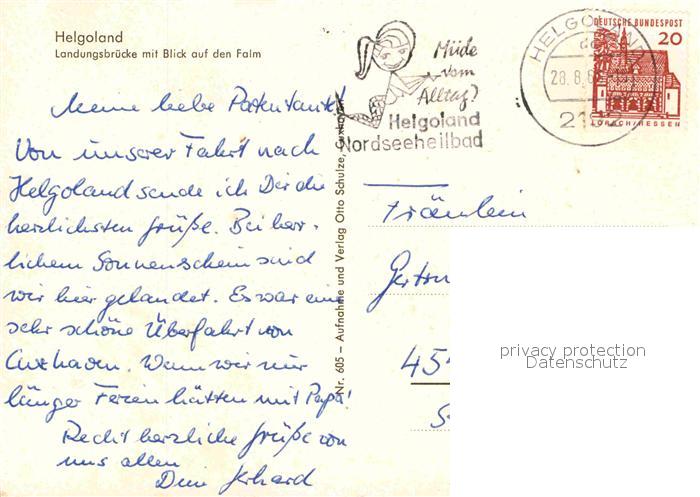 Helgoland
Landungsbrücke mit Blick auf den Falm
Meine liebe Patentante!
Von unserer Fahrt nach
Helgoland sende ich Dir die
herzlichsten Grüße. Bei herr-
lichem Sonnenschein sind
wir hier gelandet. Es war eine
sehr schöne Überfahrt von
Cuxhaven. Wenn wir nur
länger Ferien hätten mit Papa!
Recht herzliche Grüße von
uns allen
Dein
Nr. 605 – Aufnahme und Verlag Otto Schulze, Cuxhaven
Müde
vom
Alltag?
Helgoland
Nordseeheilbad
HELGOLAND
28.8.
DEUTSCHE BUNDESPOST
20
LORSCH/HESSEN
Fräulein
45
privacy protection
Datenschutz